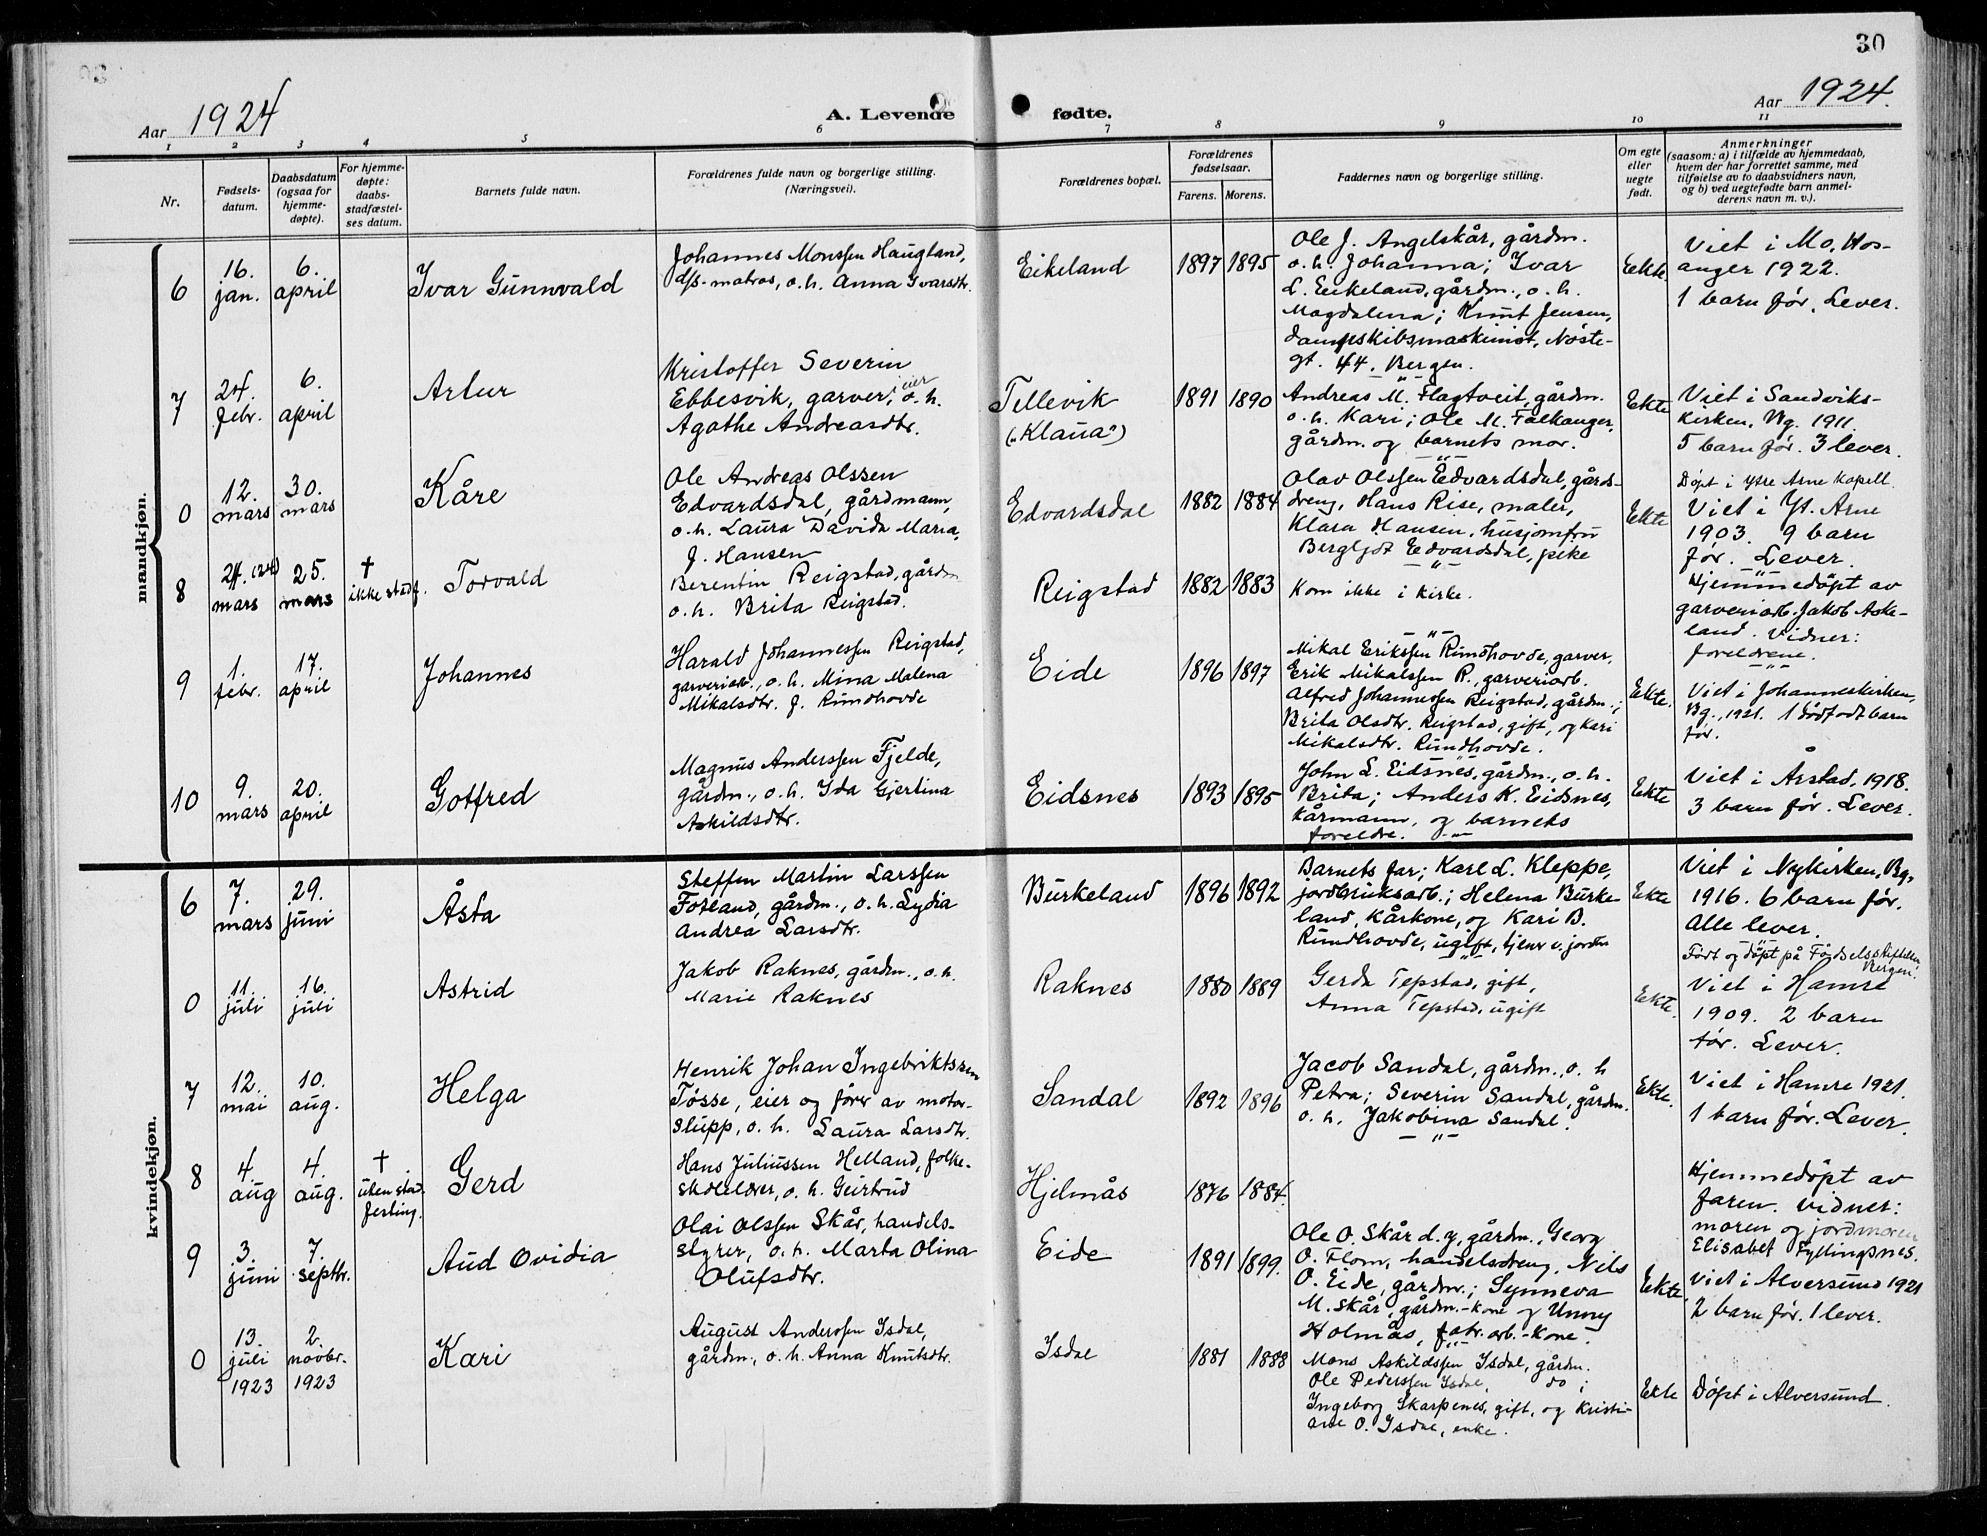 30
Aar 1924
A. Levende fødte.
Aar 1924.
1 2 3 4 5 6 7 8 9 10 11
Nr.
Fødsels-
datum.
Daabsdatum
(ogsaa for
hjemme-
døpte).
For hjemme-
døpte:
daabs-
stadfæstel-
ses datum.
Barnets fulde navn.
Forældrenes fulde navn og borgerlige stilling.
(Næringsvei).
Forældrenes bopæl.
Forældrenes
fødselsaar.
Farens. Morens.
Faddernes navn og borgerlige stilling.
Om egte
eller
uegte
født.
Anmerkninger
(saasom: a) i tilfælde av hjemmedaab,
hvem der har forrettet samme, med
tilføielse av to daabsvidners navn,
og b) ved uegtefødte barn anmel-
derens navn m. v.).
mandkjøn.
6
16.
jan.
6.
april
Ivar Gunnvald
Johannes Monssen Haugland,
d/s-matros, o.h. Anna Ivarsdtr.
Eikeland
1897 1895
Ole J. Angelskår, gårdm.
o.h. Johanna; Ivar
L. Eikeland, gårdm., o.h.
Magdalena; Knut Jensen,
dampskibsmaskinist, Nøste-
gt. 44. Bergen.
Ekte
Viet i Mo, Hos-
anger 1922.
1 barn før. Lever.
7
24.
febr.
6.
april
Artur
Kristoffer Severin
Ebbesvik, garverieier, o.h.
Agathe Andreasdtr.
Tellevik
("Klaua")
1891 1890
Andreas M. Flagtveit, gårdm.
o.h. Kari; Ole M. Falkanger,
gårdm. og barnets mor.
Ekte
Viet i Sandviks-
kirken, Bg. 1911.
5 barn før. 3 lever.
0
12.
mars
30.
mars
Kåre
Ole Andreas Olssen
Edvardsdal, gårdmann,
o.h. Laura Davida Maria,
f. Hansen
Edvardsdal
1882 1884
Olav Olssen Edvardsdal, gårds-
dreng, Hans Rise, maler,
Klara Hansen, husjomfru
Bergljot Edvardsdal, pike
Ekte
Døpt i Ytre Arne Kapell
Viet i Yt. Arne
1903. 9 barn
før. Lever.
8
(24)
mars
25.
mars
†
ikke stadf.
Torvald
Berentin Reigstad, gårdm
o.h. Brita Reigstad.
Reigstad
1882 1883
Kom ikke i kirke.
Hjemmedøpt av
garveriarb. Jakob Aske-
land. Vidner:
foreldrene.
9
1.
febr.
17.
april
Johannes
Harald Johannessen Reigstad,
garveriarb., o.h. Mina Malena
Mikalsdtr. f. Rundhovde
Eide
1896 1897
Mikal Erikssen Rundhovde, garver,
Erik Mikalssen R., garveriarb.
Alfred Johannessen Reigstad, gårdm.;
Brita Olsdtr. Reigstad, gift, og Kari
Mikalsdtr. Rundhovde.
Ekte.
Viet i Johanneskirken,
Bg., 1921. 1 dødfødt barn
før.
10
9.
mars
20.
april
Gotfred
Magnus Anderssen Fjelde,
gårdm., o.h. Ida Gjertina
Askildsdtr.
Eidsnes
1893 1895
John L. Eidsnes, gårdm., o.h.
Brita; Anders K. Eidsnes,
kårmann, og barnets
foreldre.
Ekte
Viet i Årstad, 1918.
3 barn før. Lever.
kvindekjøn.
6
7.
mars
29.
juni
Åsta
Steffen Martin Larssen
Fotland, gårdm., o.h. Lydia
Andrea Larsdtr.
Burkeland
1896 1892
Barnets far; Karl L. Kleppe,
jordbruksarb.; Helena Burke-
land, kårkone, og Kari B.
Rundhovde, ugift, tjener v. jorden
Ekte
Viet i Nykirken, Bg,
1916. 6 barn før.
Alle lever.
0
11.
juli
16.
juli
Astrid
Jakob Raknes, gårdm., o.h.
Marie Raknes
Raknes
1880 1889
Gerda Tepstad, gift,
Anna Tepstad, ugift
Ekte.
Født og døpt på Fødselsstiftelsen
Bergen.
Viet i Hamre
1909. 2 barn
før. Lever.
7
12.
mai
10.
aug.
Helga
Henrik Johan Ingebriktssen
Tøsse, eier og fører av motor-
slupp, o.h. Laura Larsdtr.
Sandal
1892 1896
Jacob Sandal, gårdm., o.h
Petra; Severin Sandal, gårdm.
o.h. Jakobina Sandal.
Ekte.
Viet i Hamre 1921.
1 barn før. Lever.
8
4.
aug
4.
aug.
†
uten stad.
festing.
Gerd
Hans Juliussen Helland, folke-
skolelærer, o.h. Geirtrud
Hjelmås
1876 1884.
Hjemmedøpt av
faren. Vidner:
moren og jordmoren
Elisabet Fyllingsnes.
9
3.
juni
7.
septbr.
Aud Ovidia
Olai Olssen Skår, handels-
styrer, o.h. Marta Olina
Olufsdtr.
Eide
1891 1899.
Ole O. Skår d.y, gårdm., Georg
O. Flom, handelsdreng, Nils
O. Eide, gårdm.; Synneva
M. Skår, gårdm.-kone og Unny
Holmås, fabr.arb.-kone
Ekte
Viet i Alversund 1921
2 barn før. 1 lever.
0
13.
juli
1923
2.
novbr.
1923
Kari
August Anderssen Isdal,
gårdm., o.h. Anna Knutsdtr.
Isdal
1881 1888
Mons Askildssen Isdal, gårdm.
Ole Pederssen Isdal, do;
Ingeborg Skarpenes, gift, og Kristi-
ane O. Isdal, enke.
Ekte
Døpt i Alversund.